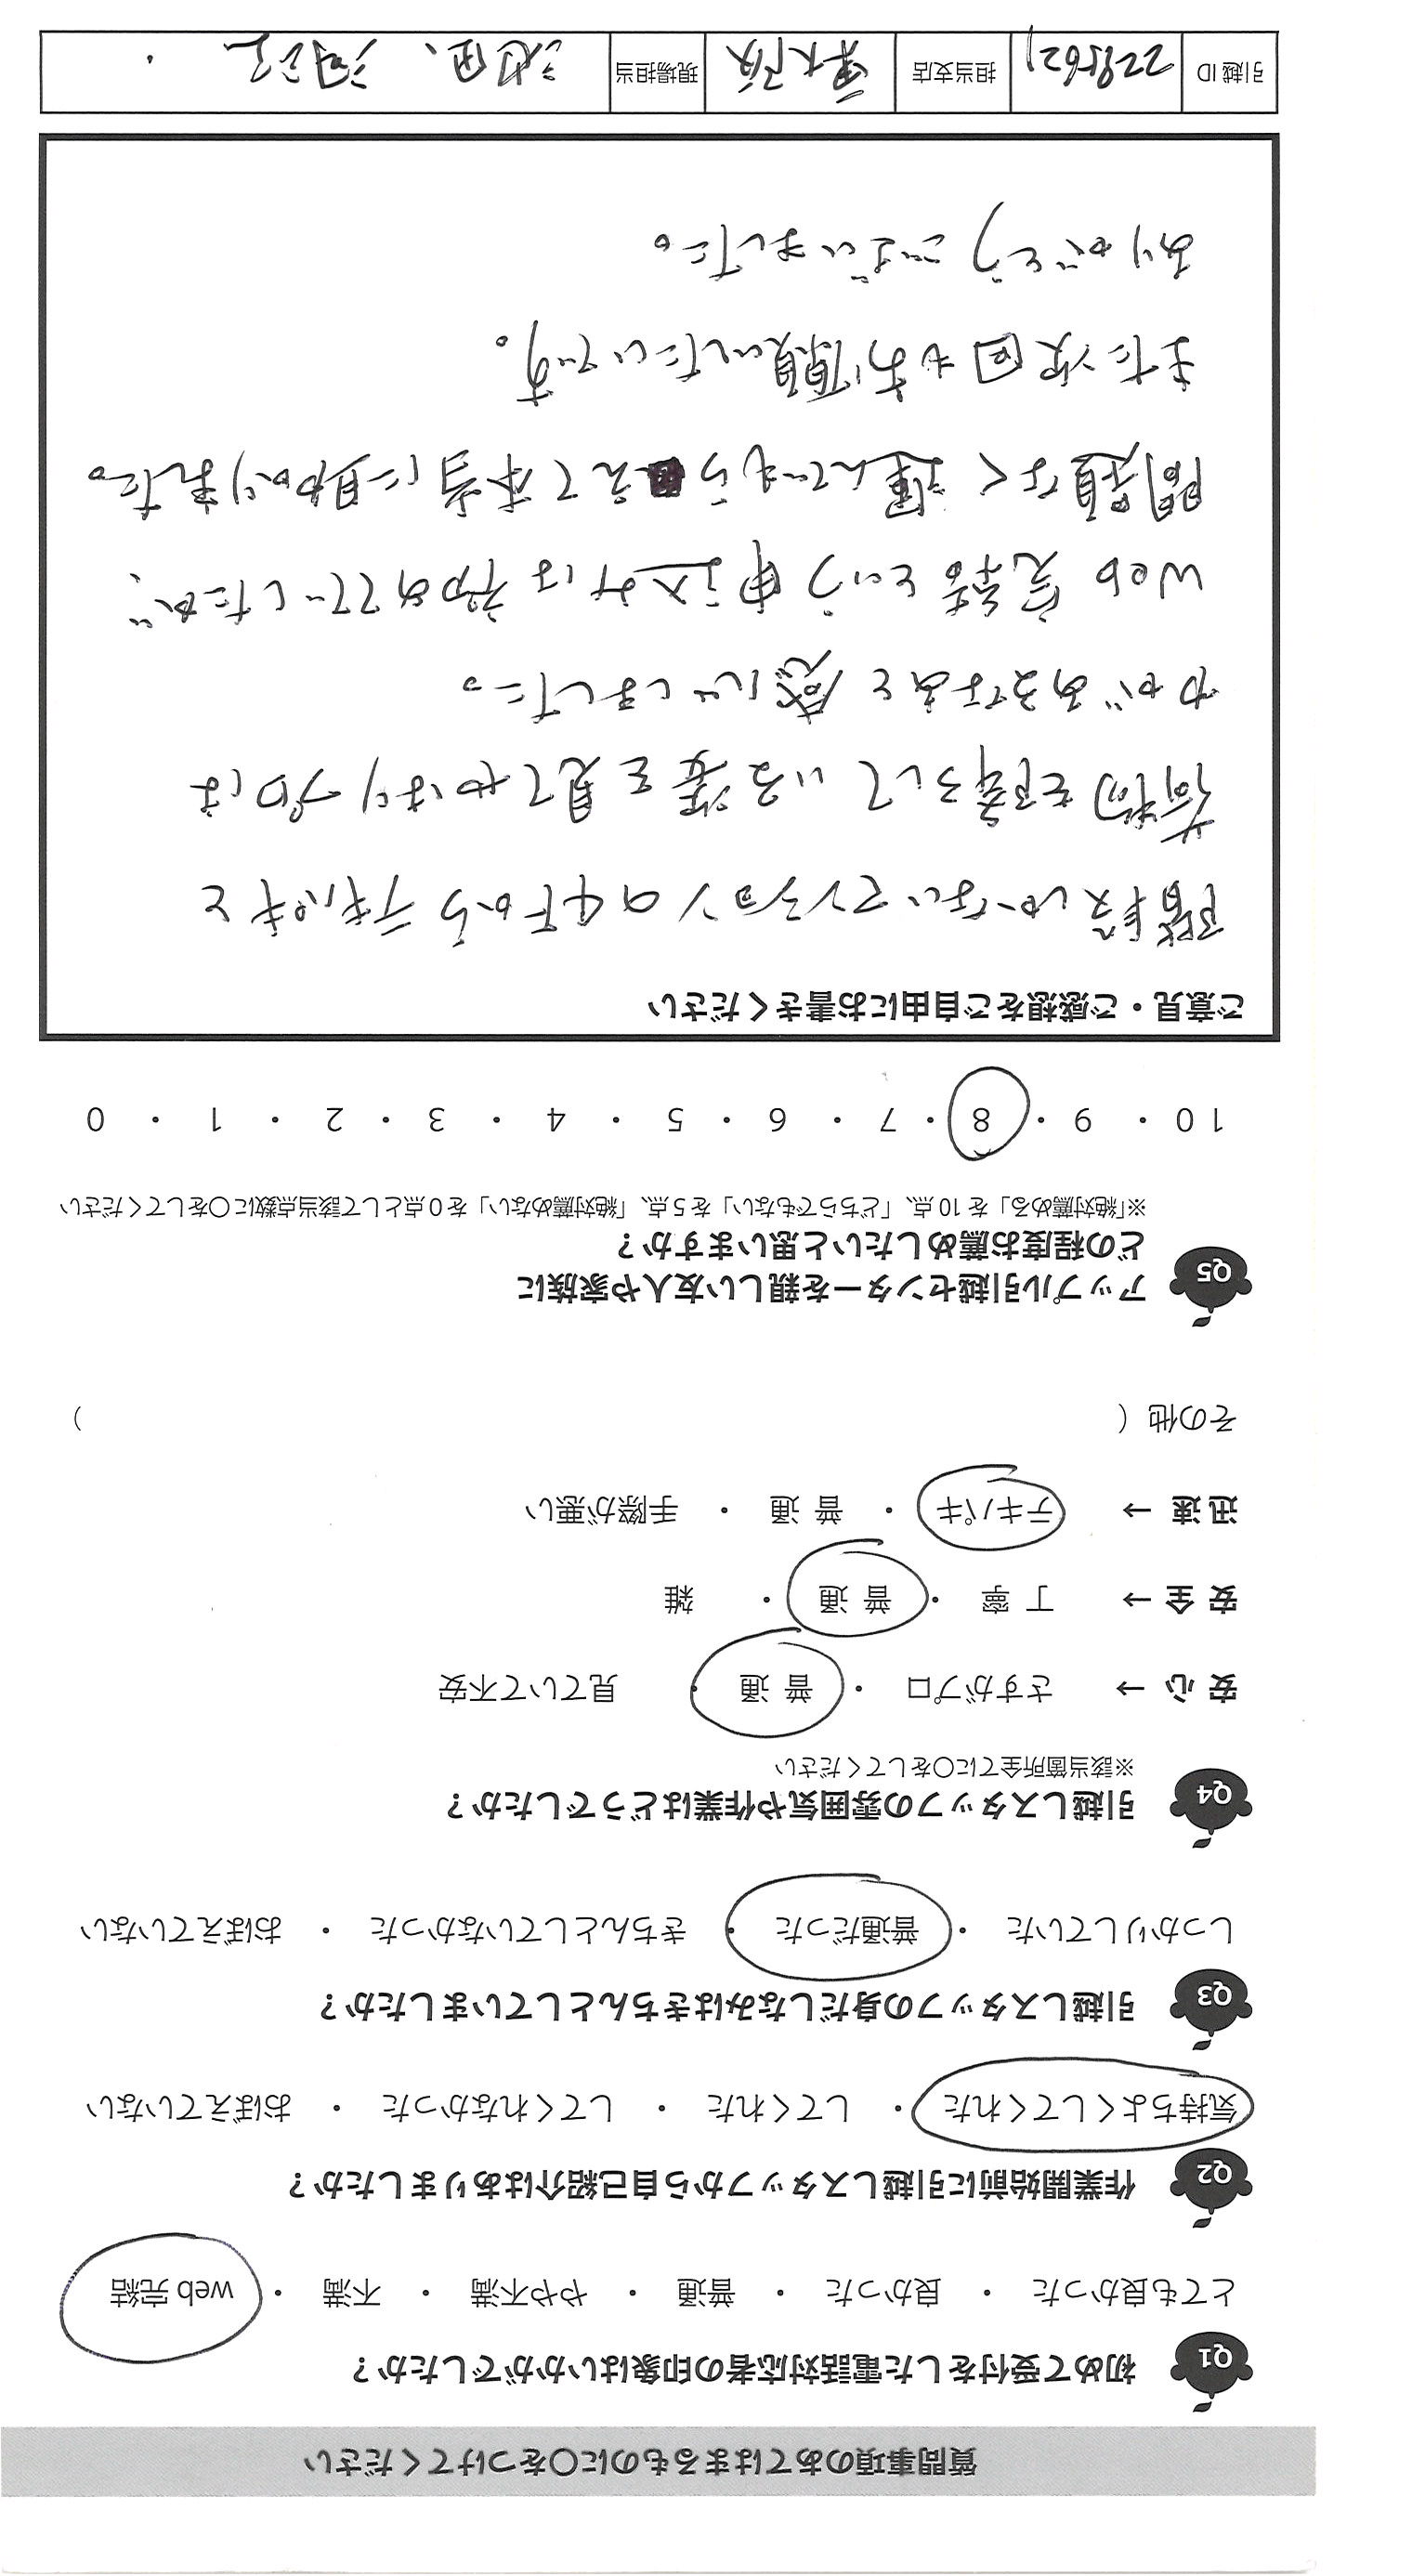 質問事項のあてはまるものに〇をつけてください
Q1 初めて受付をした電話対応者の印象はいかがでしたか？
とても良かった ・ 良かった ・ 普通 ・ やや不満 ・ 不満 ・ web 完結
Q2 作業開始前に引越しスタッフから自己紹介はありましたか？
気持ちよくしてくれた ・ してくれた ・ してくれなかった ・ おぼえていない
Q3 引越しスタッフの身だしなみはきちんとしていましたか？
しっかりしていた ・ 普通だった ・ きちんとしていなかった ・ おぼえていない
Q4 引越しスタッフの雰囲気や作業はどうでしたか？
※該当箇所全てに〇をしてください
安 心 → さすがプロ ・ 普 通 ・ 見ていて不安
安 全 → 丁 寧 ・ 普 通 ・ 雑
迅 速 → テキパキ ・ 普 通 ・ 手際が悪い
その他（ ）
Q5 アップル引越センターを親しい友人や家族に
どの程度お薦めしたいと思いますか？
※「絶対薦める」を 10 点、「どちらでもない」を 5 点、「絶対薦めない」を 0 点として該当点数に〇をしてください
10 ・ 9 ・ 8 ・ 7 ・ 6 ・ 5 ・ 4 ・ 3 ・ 2 ・ 1 ・ 0
ご意見・ご感想をご自由にお書きください
階段しかないマンションの4Fからテキパキと
荷物を降ろしている姿を見てやはりプロは
力があるなあと感心しました。
Web 完結という申込みは初めてでしたが、
問題なく運んでもらえて本当に助かりました。
また次回もお願いしたいです。
ありがとうございました。
引越 ID 2285621 担当支店 東大阪 現場担当 池田、河